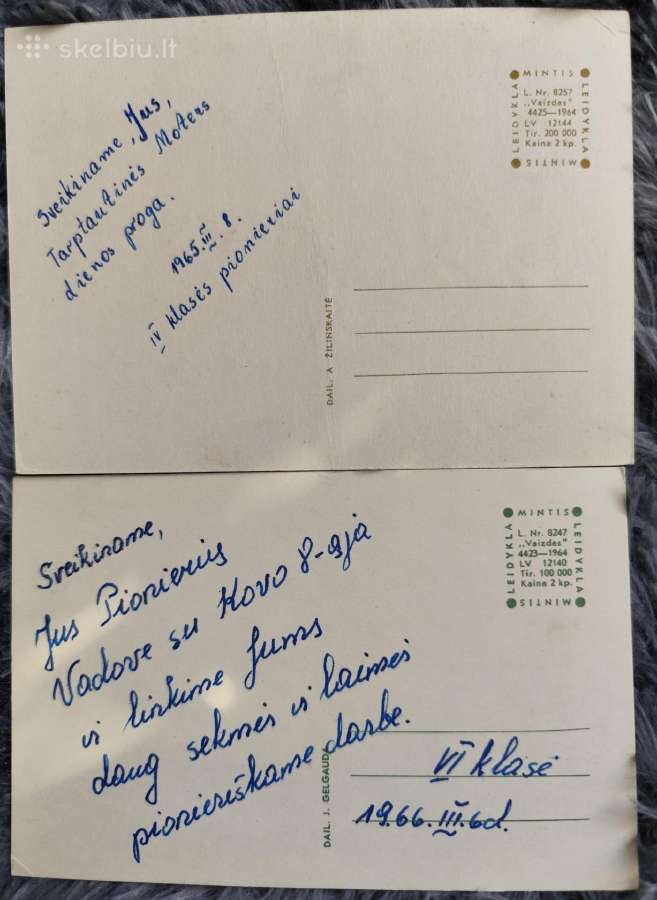 skelbiu.lt
Sveikiname, Jus,
Tarptautinės Moters
dienos proga.
1965.III.8.
IV klasės pionieriai
MINTIS
LEIDYKLA
MINTIS
LEIDYKLA
L. Nr. 8257
„Vaizdas"
4425—1964
LV 12144
Tir. 200 000
Kaina 2 kp.
DAIL. A ŽILINSKAITĖ
Sveikiname,
Jus Pionierius
Vadove su Kovo 8-ąja
ir linkime Jums
daug sekmės ir laimės
pionieriškame darbe.
MINTIS
LEIDYKLA
MINTIS
LEIDYKLA
L. Nr. 8247
„Vaizdas"
4423—1964
LV 12140
Tir. 100 000
Kaina 2 kp.
DAIL. J. GELGAUDA
VI klasė
1966.III.6d.